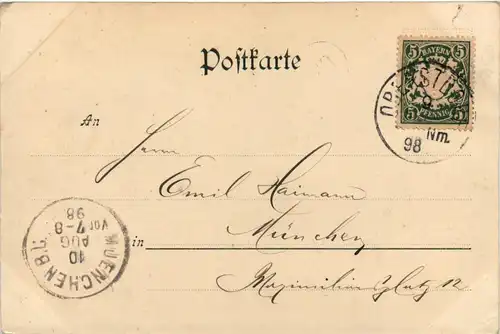 Postkarte
5 BAYERN 5
5 PFENNIG 5
9
Nm.
98
An
Herrn
Emil Haimann
in München
Maximiliansplatz 12
MUENCHEN B.P.
10
AUG
Vor 7-8
98